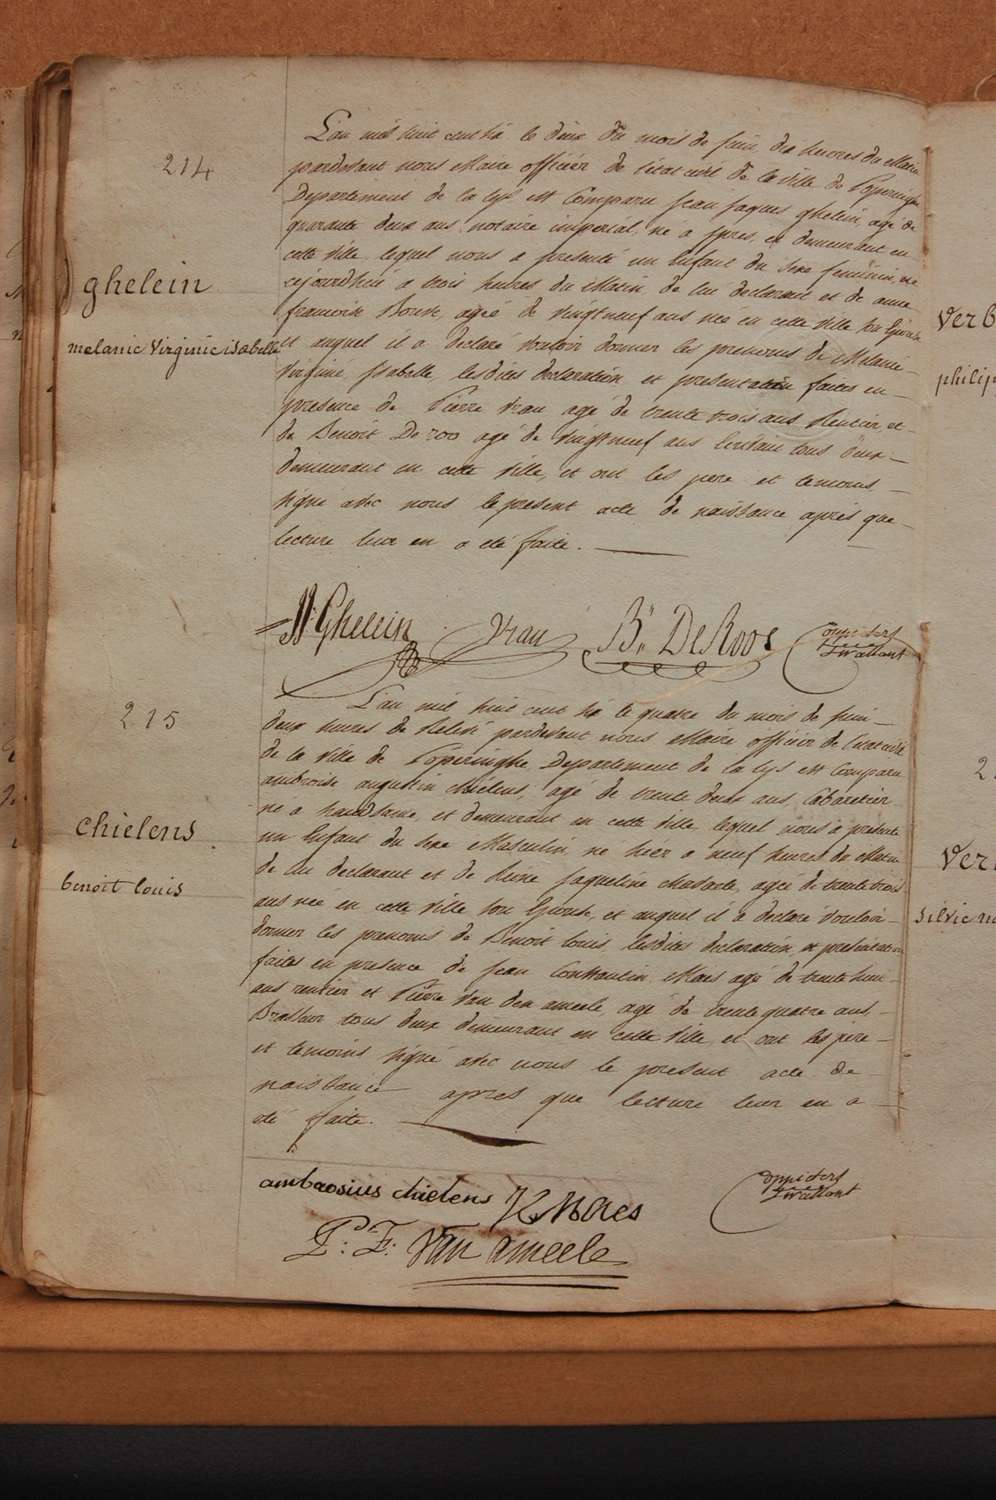 214
ghelein
melanie Virginie isabelle
L'an mil huit cent dix le deux du mois de juin, dix heures du Matin
pardevant nous Maire officier de l'état civil de la ville de Poperinghe
Departement de la Lys est Comparu jean jaques ghelein, agé de
quarante deux ans, notaire imperial, né a ypres, et demeurant en
cette ville, lequel nous a presenté un Enfant du sexe feminin, né
cejourdhui a trois heures du Matin, de lui declarant et de anne
francoise agée de vingtneuf ans née en cette ville son Epouse
et auquel il a declaré vouloir donner les prenoms de Melanie
Virginie Isabelle, lesdites declaration et presentation faites en
presence de Pierre Vrau agé de trente trois ans Rentier et
de Benoit De roo agé de vingtneuf ans tous deux
demeurant en cette ville, et ont les pere et temoins
signé avec nous le present acte de naissance après que
lecture leur en a été faite.
Ghelein Vrau B. DeRoo
215
chielens
benoit louis
L'an mil huit cent dix le quatre du mois de juin
deux heures de Relevé pardevant nous Maire officier de l'état civil
de la ville de Poperinghe Departement de la Lys est Comparu
ambroise augustin chielens, agé de trente deux ans, Cabaretier
né a et demeurant en cette ville, lequel nous a presenté
un Enfant du sexe Masculin, né hier a neuf heures du Matin
de lui declarant et de Reine jaqueline agée de trente trois
ans née en cette ville son Epouse, et auquel il a declaré vouloir
donner les prenoms de Benoit louis lesdites declaration et presentation
faites en presence de jean Constantin Maes agé de
ans rentier et Pierre Van den ameele, agé de trente quatre ans,
Brasseur tous deux demeurant en cette ville, et ont les pere
et temoins signé avec nous le present acte de
naissance après que lecture leur en a
été faite.
ambrosius chielens Maes
P: F: Van ameele
Verb
philip
Ver
silvie